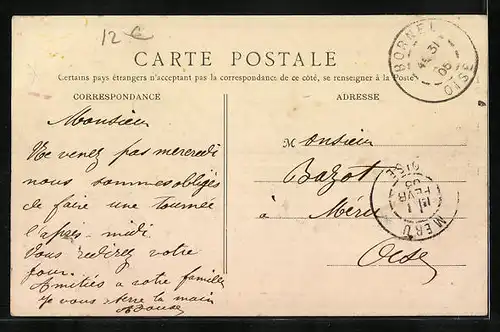 12 €
CARTE POSTALE
Certains pays étrangers n'acceptant pas la correspondance de ce côté, se renseigner à la Poste
CORRESPONDANCE
ADRESSE
BORNEL
31
05
OISE
Monsieur
Ne venez pas mercredi
nous sommes obligés
de faire une tournée
l'après-midi
Vous redirez votre
jour.
Amitiés a votre famille
Je vous serre la main
Monsieur
Bazot
à Méru
Oise
MERU
1
FEVR
05
OISE